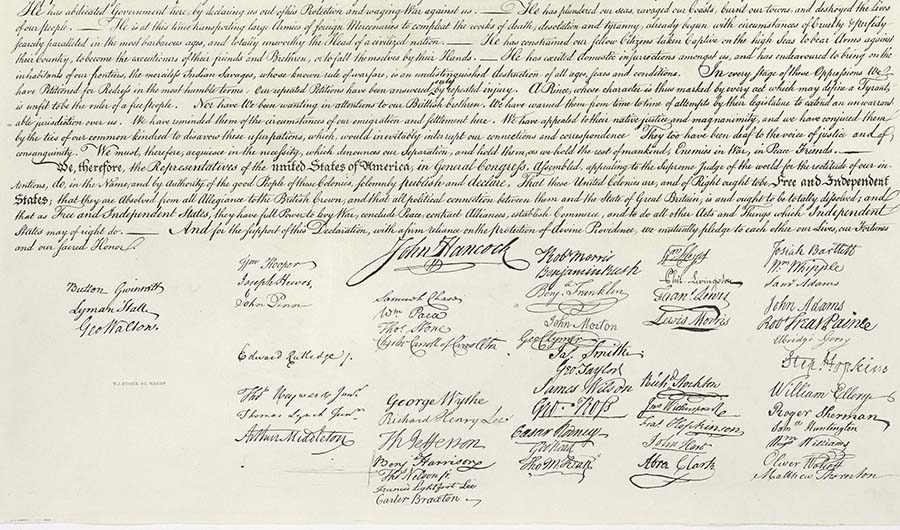 He has abdicated Government here, by declaring us out of his Protection and waging War against us. — He has plundered our seas, ravaged our Coasts, burnt our towns, and destroyed the lives
of our people. — He is at this time transporting large Armies of foreign Mercenaries to compleat the works of death, desolation and tyranny, already begun with circumstances of Cruelty & perfidy
scarcely paralleled in the most barbarous ages, and totally unworthy the Head of a civilized nation. — He has constrained our fellow Citizens taken Captive on the high Seas to bear Arms against
their Country, to become the executioners of their friends and Brethren, or to fall themselves by their Hands. — He has excited domestic insurrections amongst us, and has endeavoured to bring on the
inhabitants of our frontiers, the merciless Indian Savages, whose known rule of warfare, is an undistinguished destruction of all ages, sexes and conditions. In every stage of these Oppressions We
have Petitioned for Redress in the most humble terms: Our repeated Petitions have been answered only by repeated injury. A Prince, whose character is thus marked by every act which may define a Tyrant,
is unfit to be the ruler of a free people. Nor have We been wanting in attentions to our Brittish brethren. We have warned them from time to time of attempts by their legislature to extend an unwarrant-
able jurisdiction over us. We have reminded them of the circumstances of our emigration and settlement here. We have appealed to their native justice and magnanimity, and we have conjured them
by the ties of our common kindred to disavow these usurpations, which, would inevitably interrupt our connections and correspondence They too have been deaf to the voice of justice and of
consanguinity. We must, therefore, acquiesce in the necessity, which denounces our Separation, and hold them, as we hold the rest of mankind, Enemies in War, in Peace Friends. —
We, therefore, the Representatives of the united States of America, in General Congress, Assembled, appealing to the Supreme Judge of the world for the rectitude of our in-
tentions, do, in the Name, and by authority of the good People of these Colonies, solemnly publish and declare, That these United Colonies are, and of Right ought to be Free and Independent
States; that they are Absolved from all Allegiance to the British Crown, and that all political connection between them and the State of Great Britain, is and ought to be totally dissolved; and
that as Free and Independent States, they have full Power to levy War, conclude Peace, contract Alliances, establish Commerce, and to do all other Acts and Things which Independent
States may of right do. — And for the support of this Declaration, with a firm reliance on the protection of divine Providence, we mutually pledge to each other our Lives, our Fortunes
and our sacred Honor.
John Hancock
Button Gwinnett
Lyman Hall
Geo Walton.
Wm Hooper
Joseph Hewes,
John Penn
Edward Rutledge /.
Thos Heyward Junr.
Thomas Lynch Junr.
Arthur Middleton
Samuel Chase
Wm Paca
Thos Stone
Charles Carroll of Carrollton
George Wythe
Richard Henry Lee
Th Jefferson
Benj Harrison
Thos Nelson jr.
Francis Lightfoot Lee
Carter Braxton
Robt Morris
Benjamin Rush
Benja Franklin
John Morton
Geo Clymer
Jas Smith
Geo. Taylor
James Wilson
Geo. Ross
Caesar Rodney
Geo Read
Tho M:Kean
Wm Floyd
Phil. Livingston
Frans. Lewis
Lewis Morris
Richd Stockton
Jno Witherspoon
Fras Hopkinson
John Hart
Abra Clark
Josiah Bartlett
Wm Whipple
Saml Adams
John Adams
Robt Treat Paine
Elbridge Gerry
Step. Hopkins
William Ellery
Roger Sherman
Saml Huntington
Wm Williams
Oliver Wolcott
Matthew Thornton
W.J. STONE SC. WASHN.